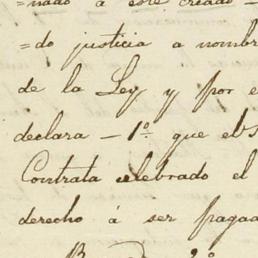 =nado á este criado –
=do justicia a nombre
de la Ley y por e
declara – 1º que el S
Contrata celebrado el
derecho á ser pagad